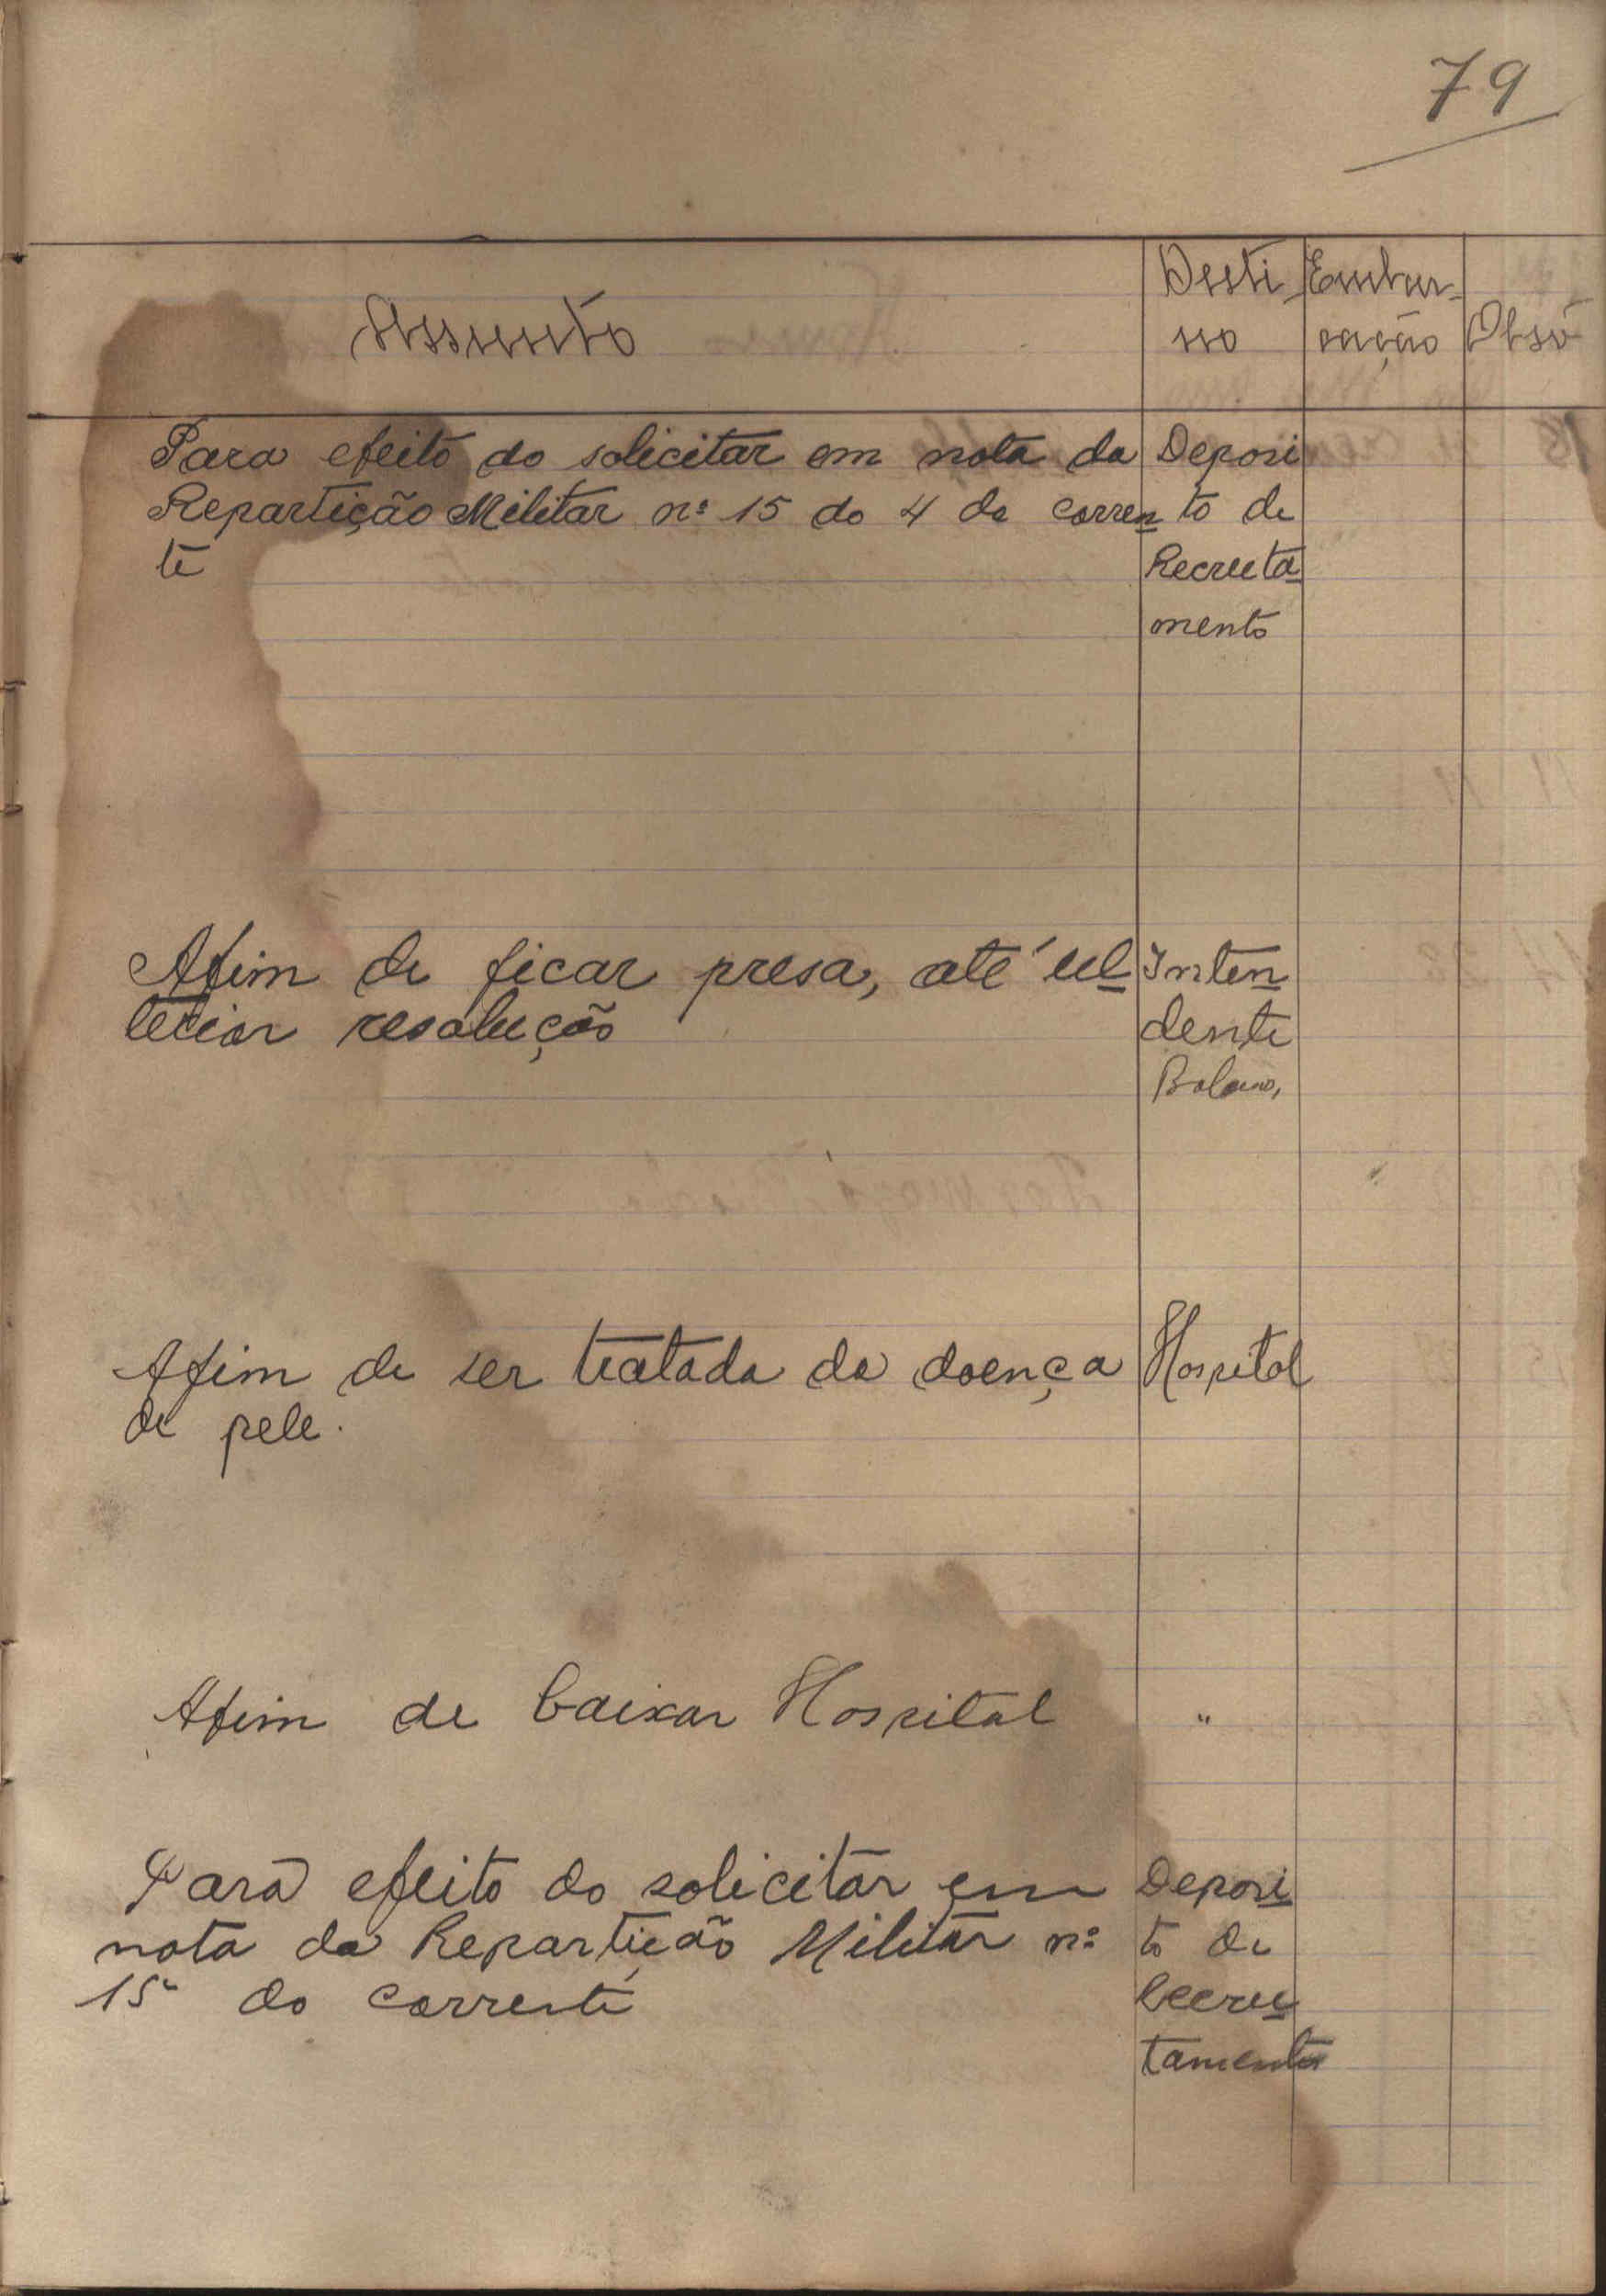 79
Assunto
Desti-
no
Embar-
cação
Obsô
Para efeito do solicitar em nota da
Repartição Militar nº 15 do 4 do corren
te
Deposi
to de
Recruta
mento
Afim de ficar presa, até ul
terior resolução
Inten
dente
Afim de ser tratada da doença
de pele.
Hospital
Afim de baixar Hospital
"
Para efeito do solicitar em
nota da Repartição Militar nº
15 do corrente
Deposi
to de
Recru
tamento